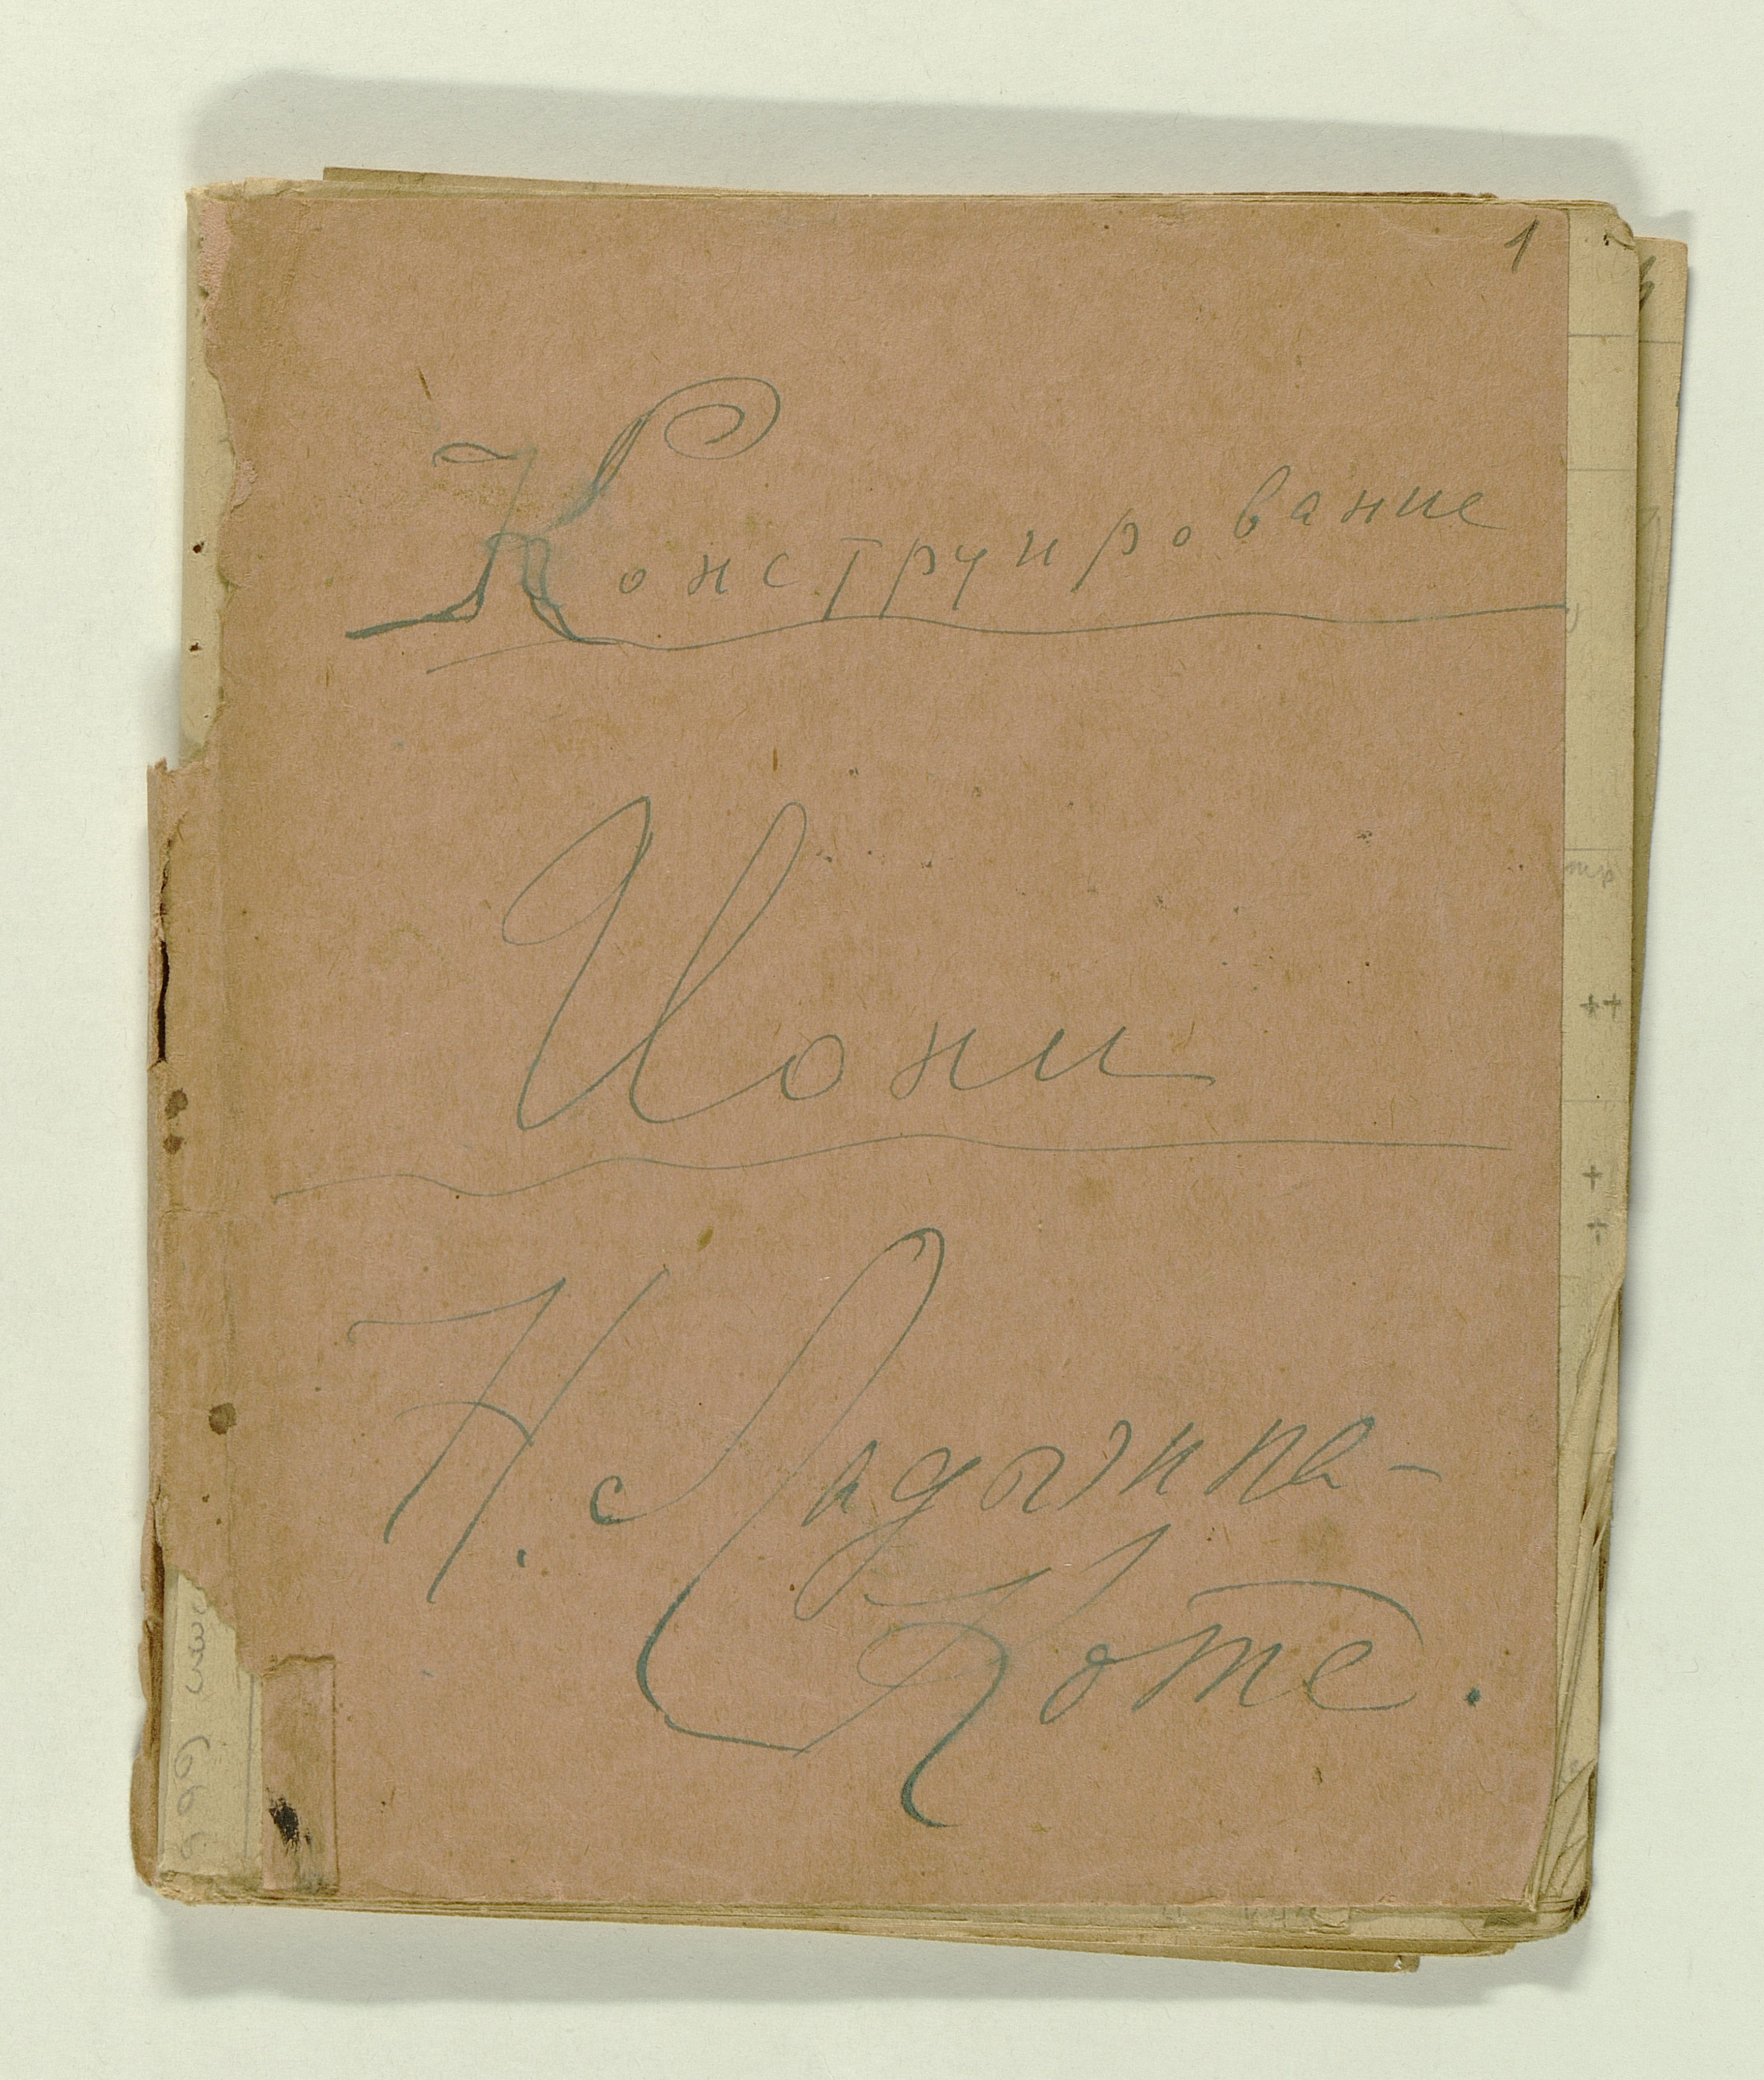 1
Конструирование
Иони
Н. Ладыгина-
Котс.